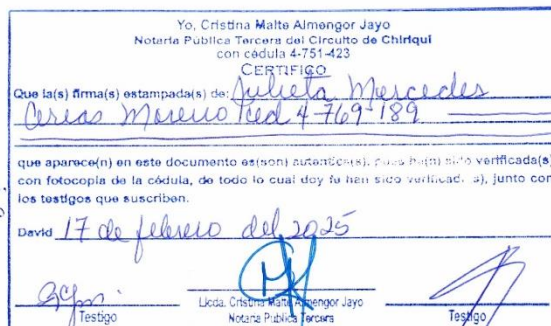 Yo, Cristina Maite Almengor Jayo
Notaria Pública Tercera del Circuito de Chiriquí
con cédula 4-751-423
CERTIFICO
Que la(s) firma(s) estampada(s) de: Julieta Mercedes
Moreno ced 4-769-189
que aparece(n) en este documento es(son) autentica(s), pues ha(n) sido verificada(s)
con fotocopia de la cédula, de todo lo cual doy fe han sido verificada(s), junto con
los testigos que suscriben.
David 17 de febrero del 2025
Testigo
Licda. Cristina Maite Almengor Jayo
Notaria Pública Tercera
Testigo